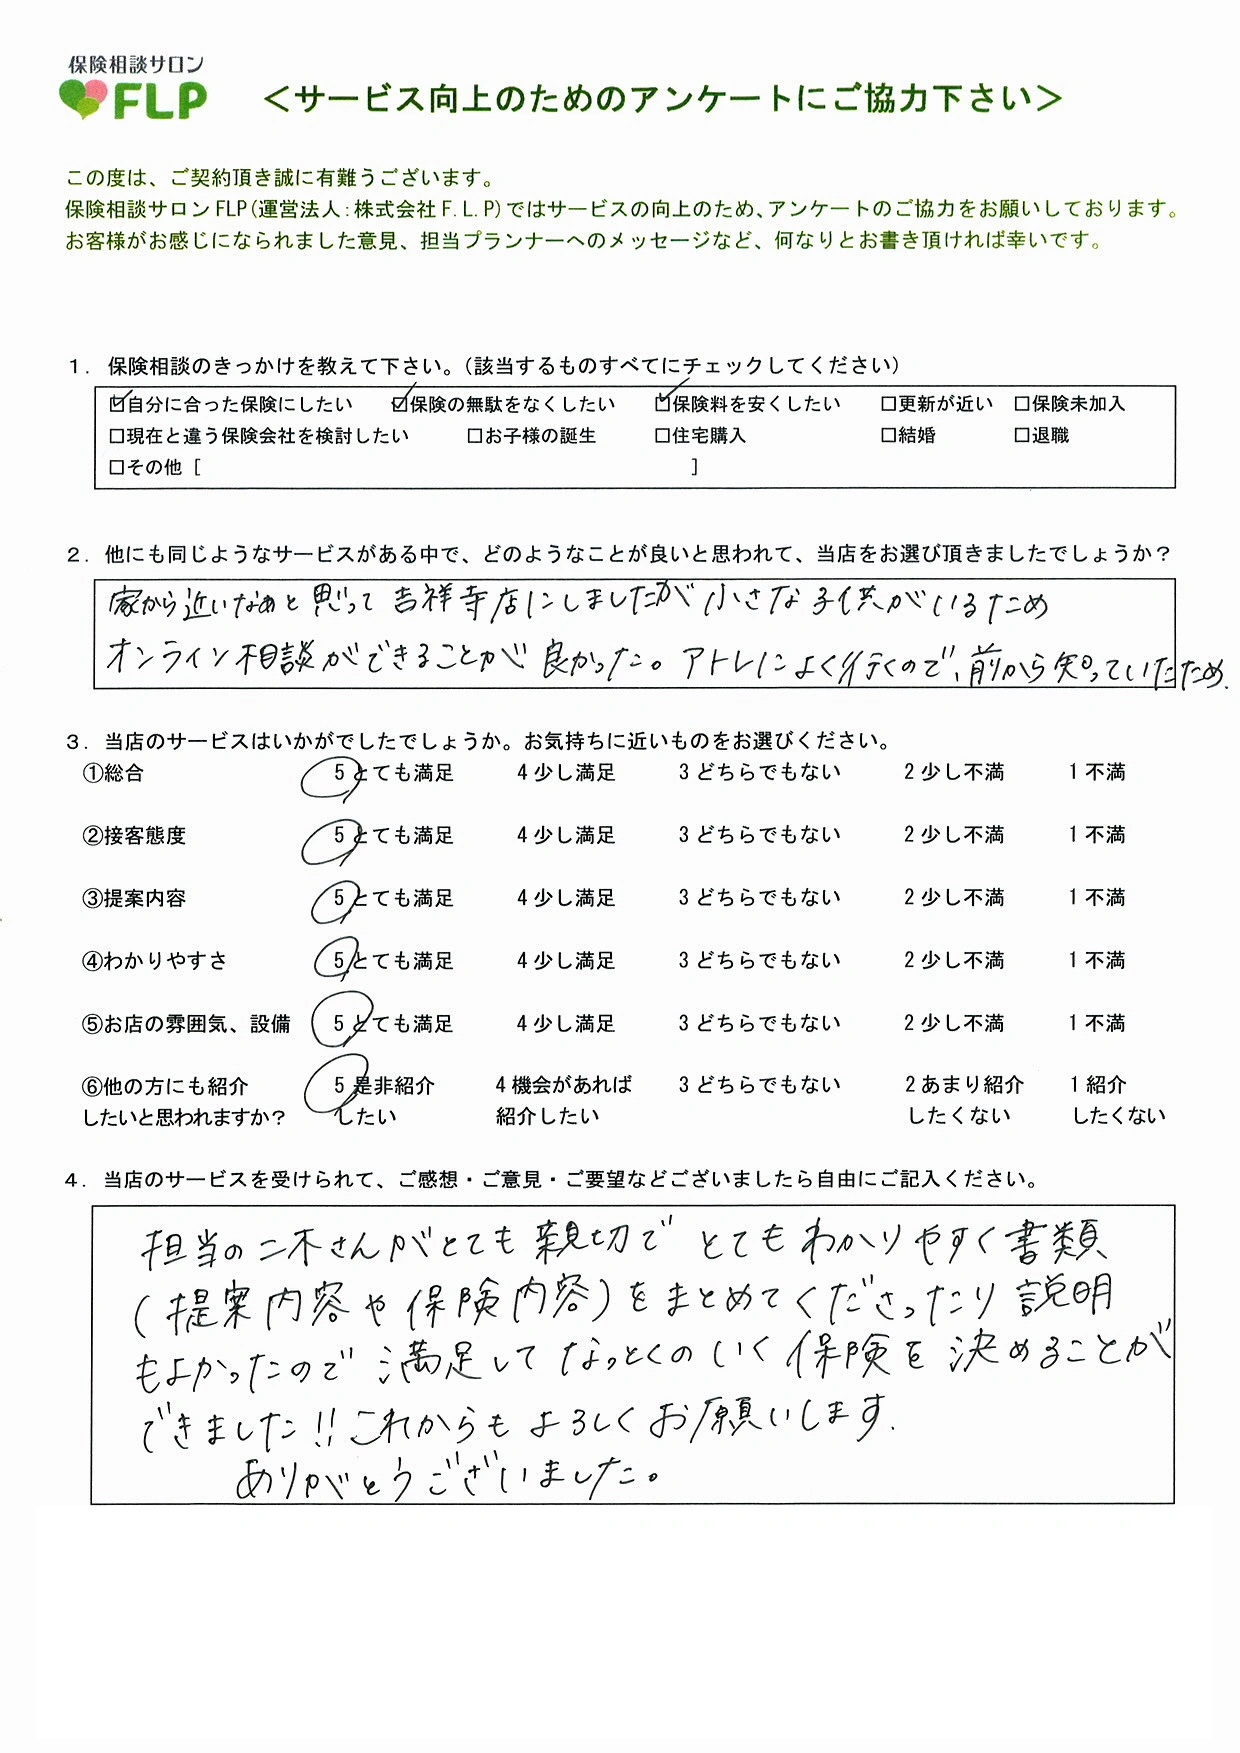 保険相談サロン
FLP
＜サービス向上のためのアンケートにご協力下さい＞
この度は、ご契約頂き誠に有難うございます。
保険相談サロンFLP(運営法人:株式会社F.L.P)ではサービスの向上のため、アンケートのご協力をお願いしております。
お客様がお感じになられました意見、担当プランナーへのメッセージなど、何なりとお書き頂ければ幸いです。
１．保険相談のきっかけを教えて下さい。（該当するものすべてにチェックしてください）
☑自分に合った保険にしたい ☑保険の無駄をなくしたい ☑保険料を安くしたい □更新が近い □保険未加入
□現在と違う保険会社を検討したい □お子様の誕生 □住宅購入 □結婚 □退職
□その他［ ］
２．他にも同じようなサービスがある中で、どのようなことが良いと思われて、当店をお選び頂きましたでしょうか？
家から近いなぁと思って吉祥寺店にしましたが小さな子供がいるため
オンライン相談ができることが良かった。アトレによく行くので、前から知っていたため.
３．当店のサービスはいかがでしたでしょうか。お気持ちに近いものをお選びください。
①総合 5 とても満足 4 少し満足 3 どちらでもない 2 少し不満 1 不満
②接客態度 5 とても満足 4 少し満足 3 どちらでもない 2 少し不満 1 不満
③提案内容 5 とても満足 4 少し満足 3 どちらでもない 2 少し不満 1 不満
④わかりやすさ 5 とても満足 4 少し満足 3 どちらでもない 2 少し不満 1 不満
⑤お店の雰囲気、設備 5 とても満足 4 少し満足 3 どちらでもない 2 少し不満 1 不満
⑥他の方にも紹介 5 是非紹介 4 機会があれば 3 どちらでもない 2 あまり紹介 1 紹介
したいと思われますか？ したい 紹介したい したくない したくない
４．当店のサービスを受けられて、ご感想・ご意見・ご要望などございましたら自由にご記入ください。
担当の二木さんがとても親切でとてもわかりやすく書類
(提案内容や保険内容)をまとめてくださったり説明
もよかったので満足してなっとくのいく保険を決めることが
できました!!これからもよろしくお願いします.
ありがとうございました。